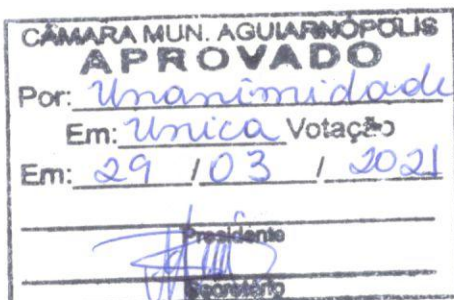 CÂMARA MUN. AGUIARNÓPOLIS
APROVADO
Por: Unanimidade
Em: Unica Votação
Em: 29 / 03 / 2021
Presidente
Secretário